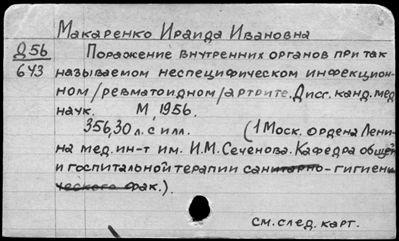 Макаренко Ираида Ивановна
Д56
643
Поражение внутренних органов при так
называемом неспецифическом инфекцион-
ном /ревматоидном/артрите. Дисс. канд. мед.
наук. М, 1956.
356,30 л. с илл. (1 Моск. ордена Лени-
на мед. ин-т им. И.М. Сеченова. Кафедра общей
и госпитальной терапии санитарно-гигиени
ческого фак.).
см. след. карт.